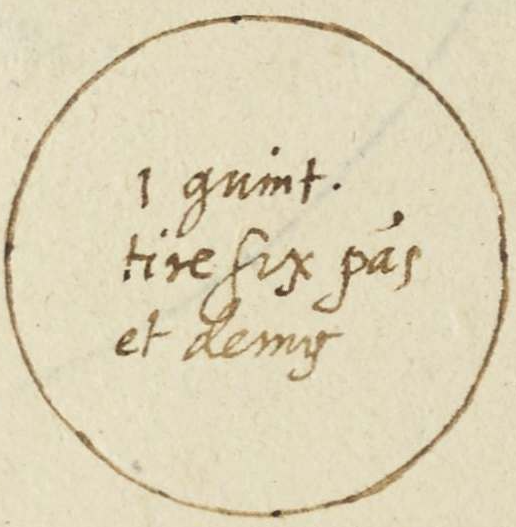 1 quint.
tire six pas
et demy